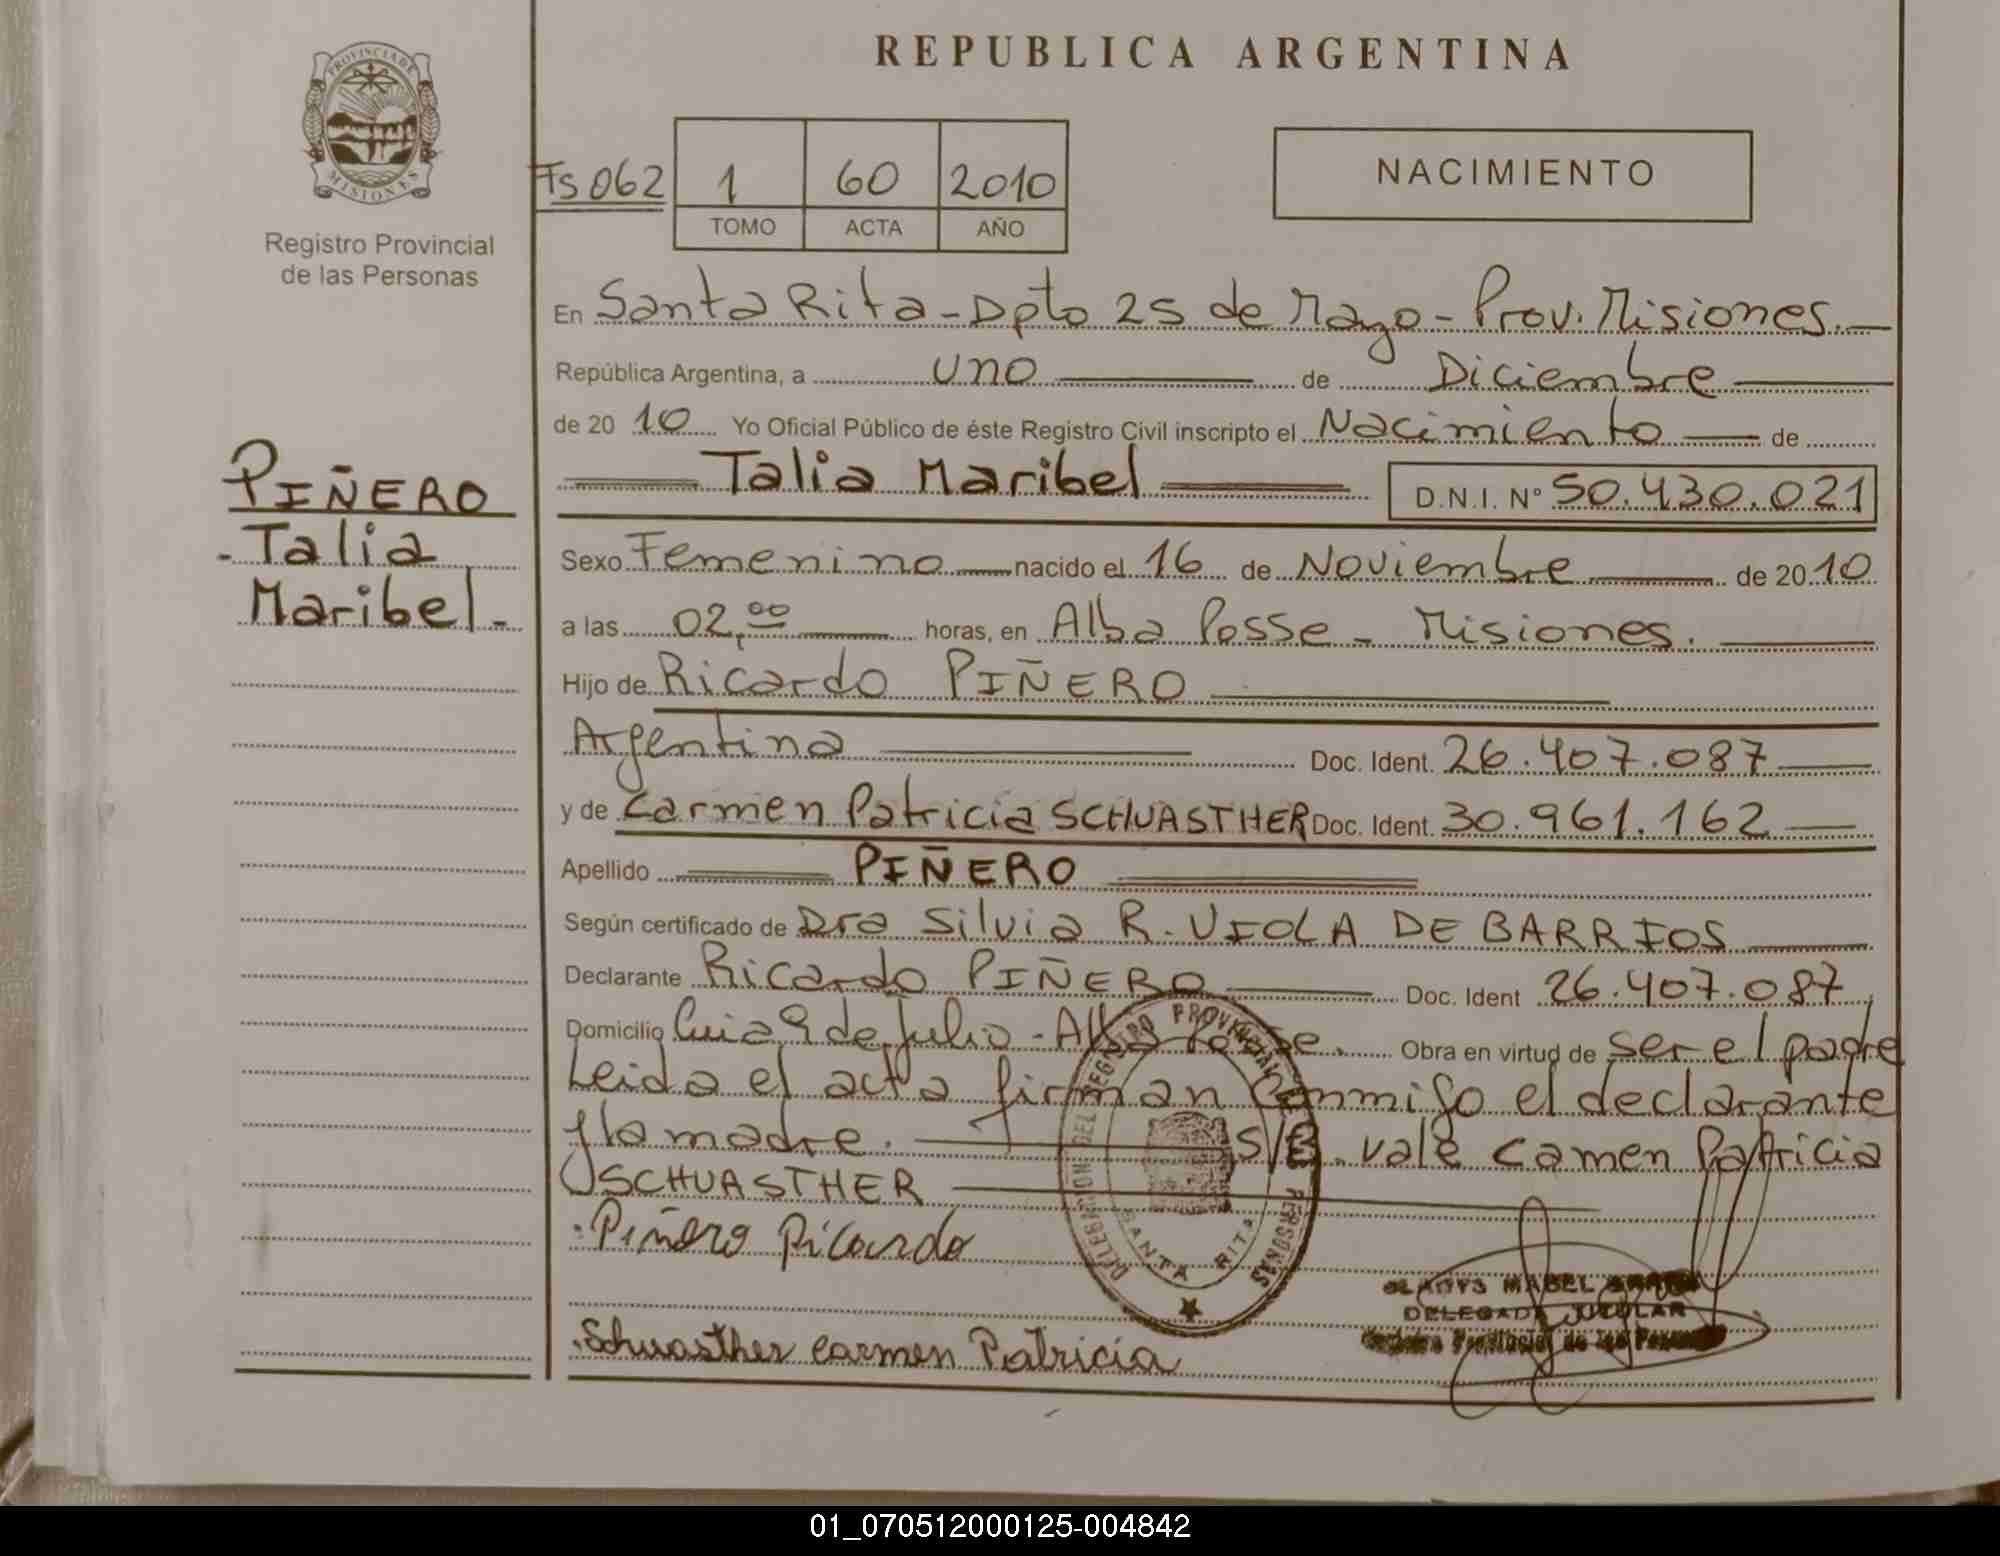 REPUBLICA ARGENTINA
PROVINCIA DE
MISIONES
Registro Provincial
de las Personas
Fs 062
1 60 2010
TOMO ACTA AÑO
NACIMIENTO
PIÑERO
- Talia
Maribel.-
En Santa Rita - Dpto 25 de Mayo - Prov. Misiones.-
República Argentina, a uno de Diciembre
de 20 10 Yo Oficial Público de éste Registro Civil inscripto el Nacimiento de
Talia Maribel D.N.I. Nº 50.430.021
Sexo Femenino nacido el 16 de Noviembre de 20 10
a las 02,00 horas, en Alba Posse - Misiones.
Hijo de Ricardo PIÑERO
Argentina Doc. Ident. 26.407.087
y de Carmen Patricia SCHUASTHER Doc. Ident. 30.961.162
Apellido PIÑERO
Según certificado de Dra Silvia R. VIOLA DE BARRIOS
Declarante Ricardo PIÑERO Doc. Ident 26.407.087
Domicilio 9 de Julio - Alba Posse. Obra en virtud de ser el padre
Leida el acta firman conmigo el declarante
y la madre. S/E. vale Carmen Patricia
SCHUASTHER
Piñero Ricardo
Schuasther Carmen Patricia
DELEGACION DEL REGISTRO PROVINCIAL PERSONAS
SANTA RITA
GLADYS MABEL
DELEGADA TITULAR
01_070512000125-004842